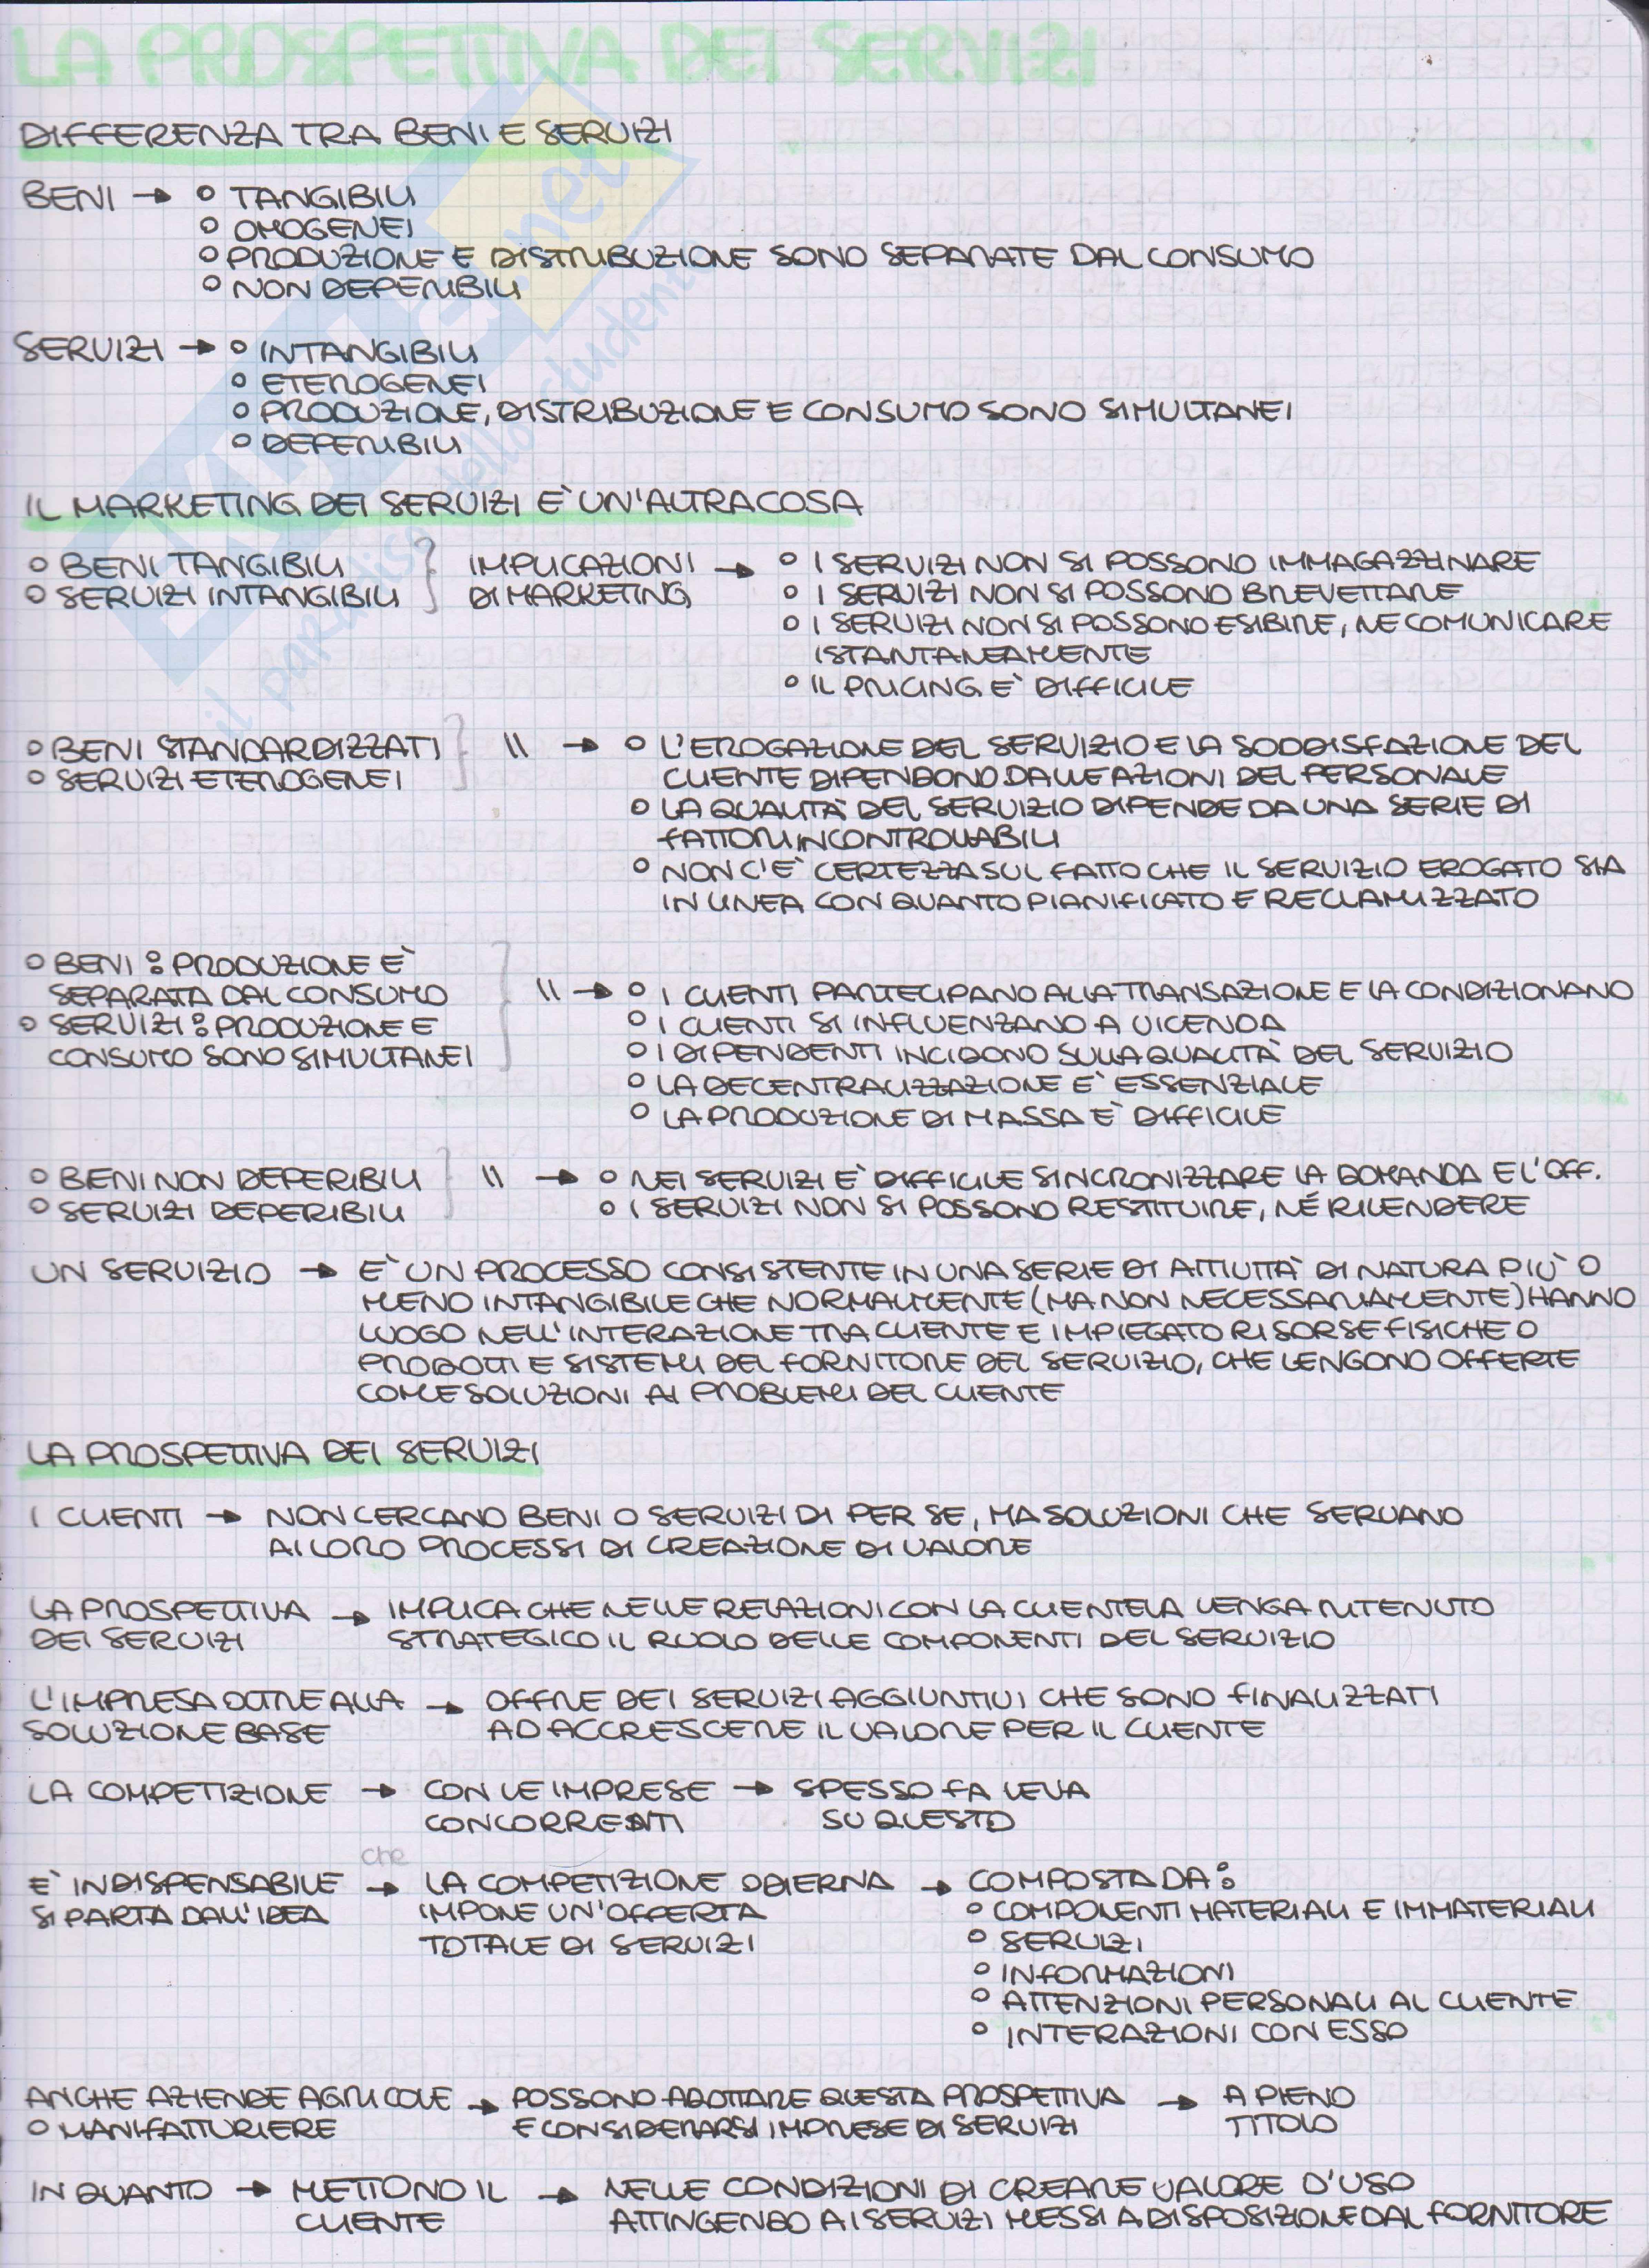 LA PROSPETTIVA DEI SERVIZI
DIFFERENZA TRA BENI E SERVIZI
BENI → ° TANGIBILI
° OMOGENEI
° PRODUZIONE E DISTRIBUZIONE SONO SEPARATE DAL CONSUMO
° NON DEPERIBILI
SERVIZI → ° INTANGIBILI
° ETEROGENEI
° PRODUZIONE, DISTRIBUZIONE E CONSUMO SONO SIMULTANEI
° DEPERIBILI
IL MARKETING DEI SERVIZI E' UN'ALTRA COSA
° BENI TANGIBILI } IMPLICAZIONI → ° I SERVIZI NON SI POSSONO IMMAGAZZINARE
° SERVIZI INTANGIBILI DI MARKETING ° I SERVIZI NON SI POSSONO BREVETTARE
° I SERVIZI NON SI POSSONO ESIBIRE, NE COMUNICARE
ISTANTANEAMENTE
° IL PRICING E' DIFFICILE
° BENI STANDARDIZZATI } \\ → ° L'EROGAZIONE DEL SERVIZIO E LA SODDISFAZIONE DEL
° SERVIZI ETEROGENEI CLIENTE DIPENDONO DALLE AZIONI DEL PERSONALE
° LA QUALITA' DEL SERVIZIO DIPENDE DA UNA SERIE DI
FATTORI INCONTROLLABILI
° NON C'E' CERTEZZA SUL FATTO CHE IL SERVIZIO EROGATO SIA
IN LINEA CON QUANTO PIANIFICATO E RECLAMIZZATO
° BENI : PRODUZIONE E'
SEPARATA DAL CONSUMO } \\ → ° I CLIENTI PARTECIPANO ALLA TRANSAZIONE E LA CONDIZIONANO
° SERVIZI : PRODUZIONE E ° I CLIENTI SI INFLUENZANO A VICENDA
CONSUMO SONO SIMULTANEI ° I DIPENDENTI INCIDONO SULLA QUALITA' DEL SERVIZIO
° LA DECENTRALIZZAZIONE E' ESSENZIALE
° LA PRODUZIONE DI MASSA E' DIFFICILE
° BENI NON DEPERIBILI } \\ → ° NEI SERVIZI E' DIFFICILE SINCRONIZZARE LA DOMANDA E L'OFF.
° SERVIZI DEPERIBILI ° I SERVIZI NON SI POSSONO RESTITUIRE, NÉ RIVENDERE
UN SERVIZIO → E' UN PROCESSO CONSISTENTE IN UNA SERIE DI ATTIVITA' DI NATURA PIU' O
MENO INTANGIBILE CHE NORMALMENTE (MA NON NECESSARIAMENTE) HANNO
LUOGO NELL'INTERAZIONE TRA CLIENTE E IMPIEGATO RISORSE FISICHE O
PRODOTTI E SISTEMI DEL FORNITORE DEL SERVIZIO, CHE VENGONO OFFERTE
COME SOLUZIONI AI PROBLEMI DEL CLIENTE
LA PROSPETTIVA DEI SERVIZI
I CLIENTI → NON CERCANO BENI O SERVIZI DI PER SE, MA SOLUZIONI CHE SERVANO
AI LORO PROCESSI DI CREAZIONE DI VALORE
LA PROSPETTIVA → IMPLICA CHE NELLE RELAZIONI CON LA CLIENTELA VENGA RITENUTO
DEI SERVIZI STRATEGICO IL RUOLO DELLE COMPONENTI DEL SERVIZIO
L'IMPRESA OLTRE ALLA → OFFRE DEI SERVIZI AGGIUNTIVI CHE SONO FINALIZZATI
SOLUZIONE BASE AD ACCRESCERE IL VALORE PER IL CLIENTE
LA COMPETIZIONE → CON LE IMPRESE → SPESSO FA LEVA
CONCORRENTI SU QUESTO
che
E' INDISPENSABILE → LA COMPETIZIONE ODIERNA → COMPOSTA DA :
SI PARTA DALL'IDEA IMPONE UN'OFFERTA ° COMPONENTI MATERIALI E IMMATERIALI
TOTALE DI SERVIZI ° SERVIZI
° INFORMAZIONI
° ATTENZIONI PERSONALI AL CLIENTE
° INTERAZIONI CON ESSO
ANCHE AZIENDE AGRICOLE → POSSONO ADOTTARE QUESTA PROSPETTIVA → A PIENO
O MANIFATTURIERE E CONSIDERARSI IMPRESE DI SERVIZI TITOLO
IN QUANTO → METTONO IL → NELLE CONDIZIONI DI CREARE VALORE D'USO
CLIENTE ATTINGENDO AI SERVIZI MESSI A DISPOSIZIONE DAL FORNITORE